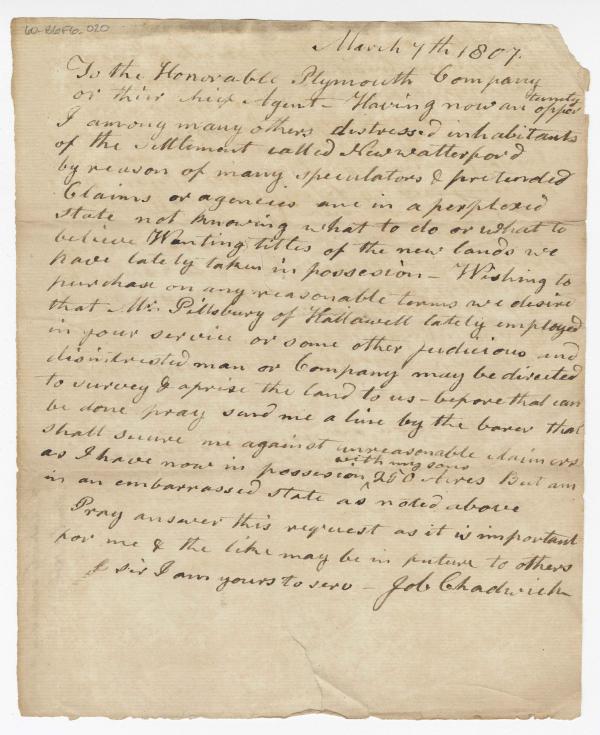 60-R6F6-020
March 7th 1807.
To the Honorable Plymouth Company
or thier chief Agent - Having now an oppor
tunity
I among many others distressed inhabitants
of the settlement called Newwatterford
by reason of many speculators & pretended
Claims or agencies are in a perplexed
state not knowing what to do or what to
believe Wanting titles of the new lands we
have lately taken in possesion - Wishing to
purchase on any reasonable terms we desire
that Mr. Pillsbury of Hallawell lately employed
in your service or some other judicious and
disintrested man or Company may be directed
to survey & aprise the land to us - before that can
be done pray send me a line by the barer that
shall secure me against unreasonable claimers
with my sons
as I have now in possesion ^ 250 Acres But am
in an embarrassed state as noted above
Pray answer this request as it is important
for me & the like may be in future to others
& sir I am yours to serv - Job Chadwick